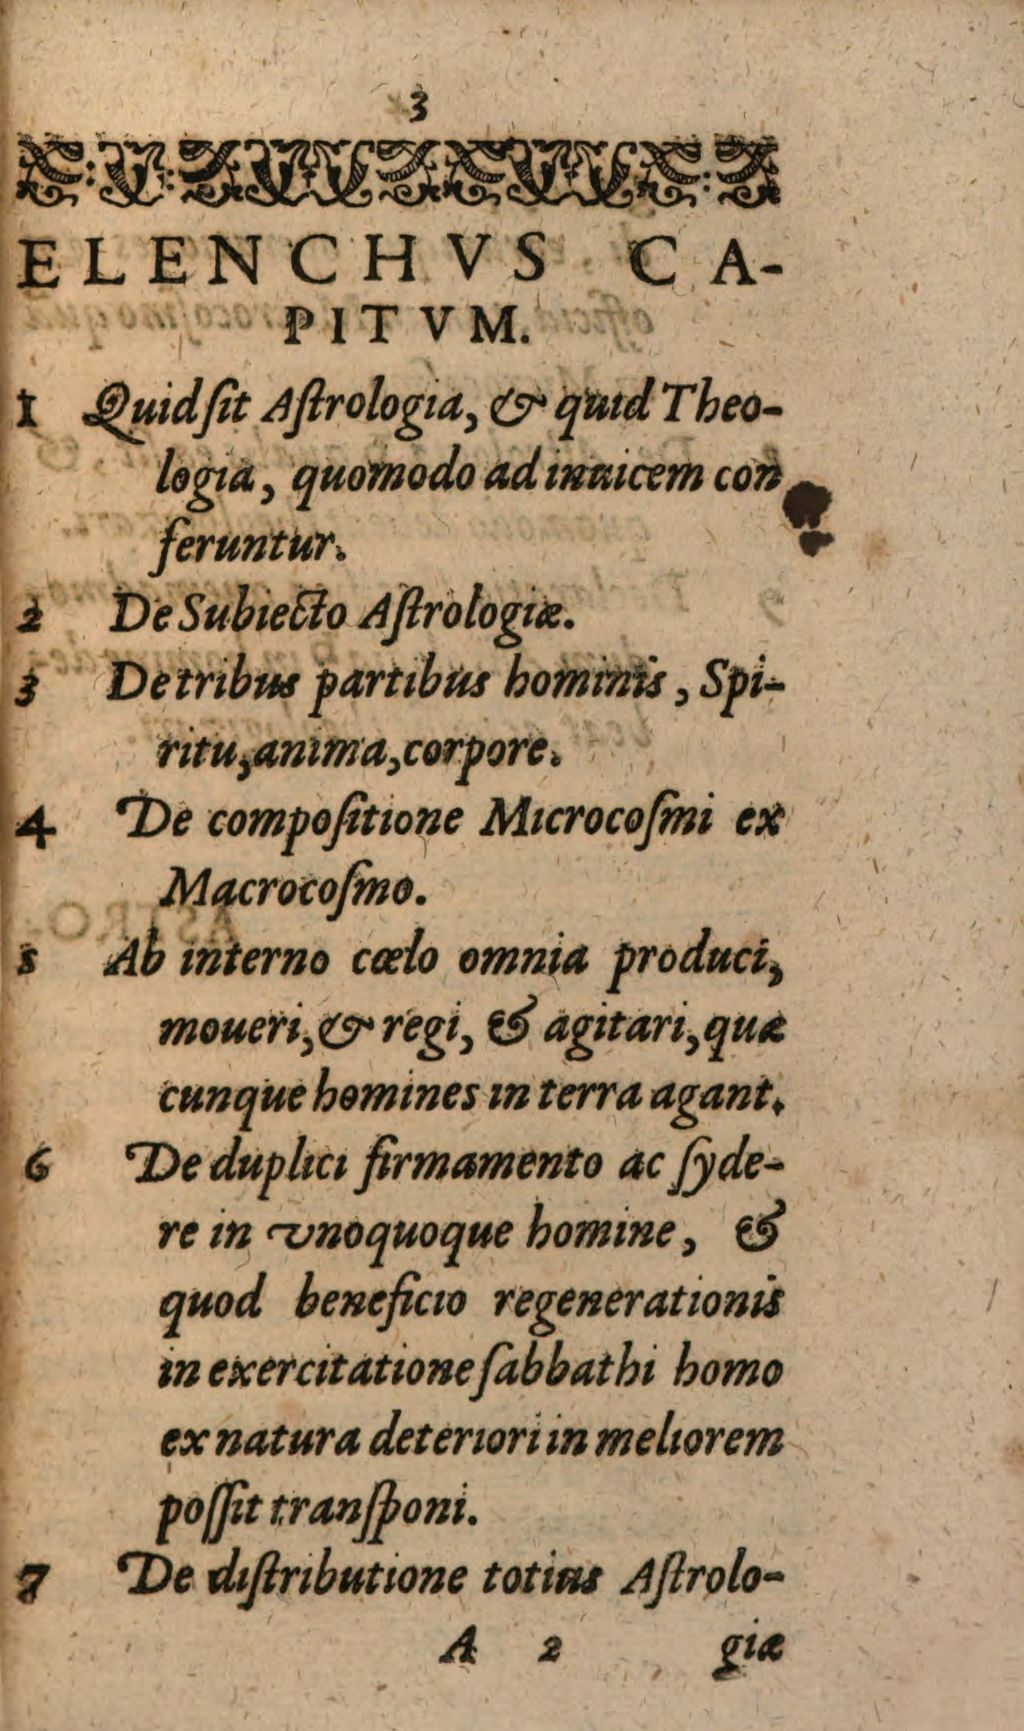 3
ELENCHVS CA-
PITVM.
1 Quid ſit Aſtrologia, & quid Theo-
logia, quomodo ad inuicem con
feruntur.
2 De Subiecto Aſtrologiæ.
3 De tribus partibus hominis, Spi-
ritu, anima, corpore.
4 De compoſitione Microcoſmi ex
Macrocoſmo.
5 Ab interno cœlo omnia produci,
moueri, & regi, & agitari, quæ
cunque homines in terra agant.
6 De duplici firmamento ac ſyde-
re in vnoquoque homine, &
quod beneficio regenerationis
in exercitatione ſabbathi homo
ex natura deteriori in meliorem
poſſit tranſponi.
7 De diſtributione totius Aſtrolo-
A 2 giæ